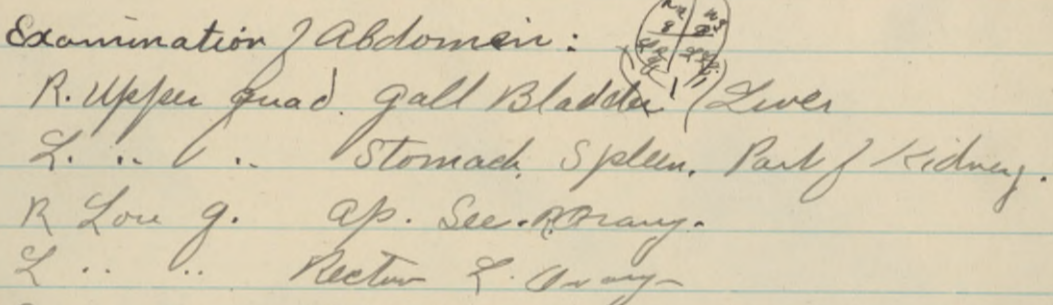 Examination of Abdomen:
R. Upper Quad. Gall Bladder Liver
L. " " Stomach, Spleen, Part of Kidney.
R Low q. Ap. R. Ovary.
L " " Rectum L. Ovary